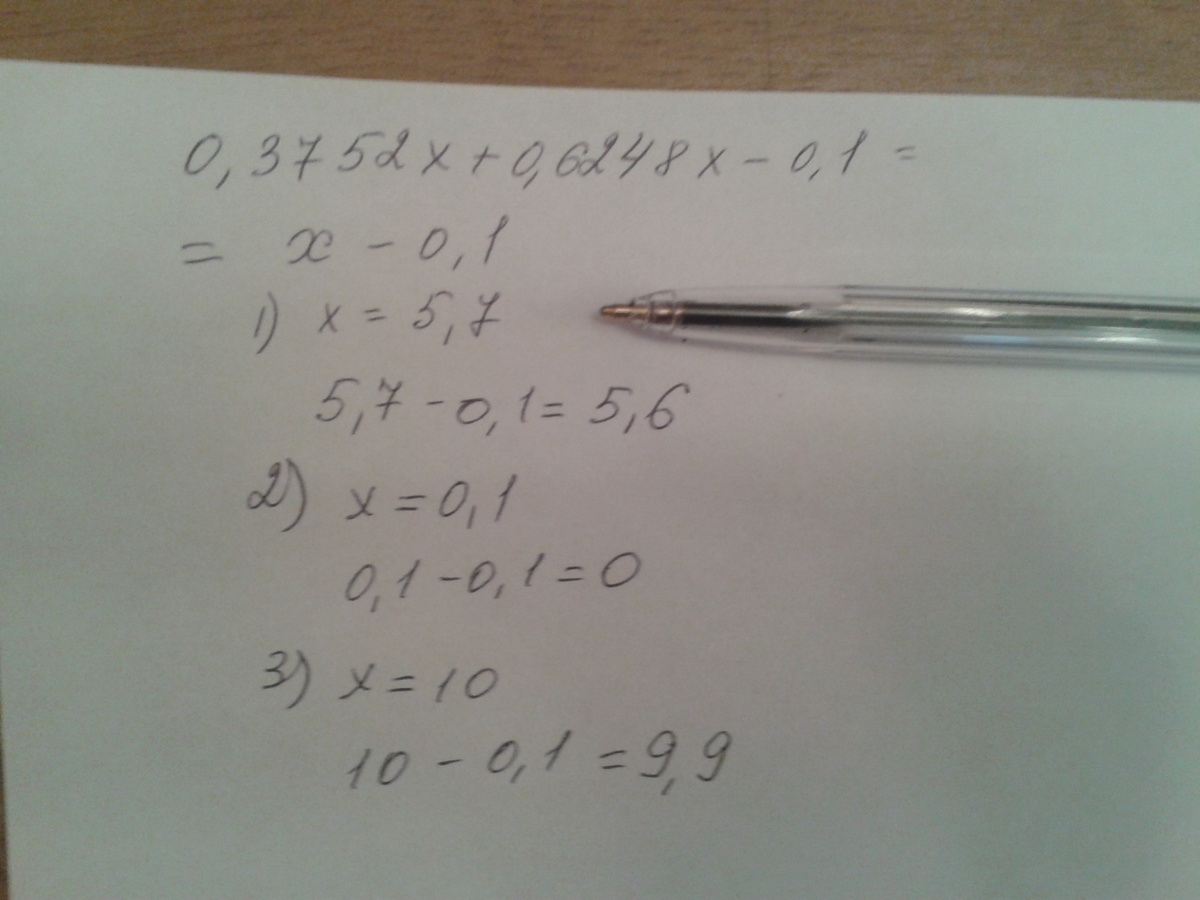 0,3752x + 0,6248x - 0,1 =
= x - 0,1
1) x = 5,7
5,7 - 0,1 = 5,6
2) x = 0,1
0,1 - 0,1 = 0
3) x = 10
10 - 0,1 = 9,9